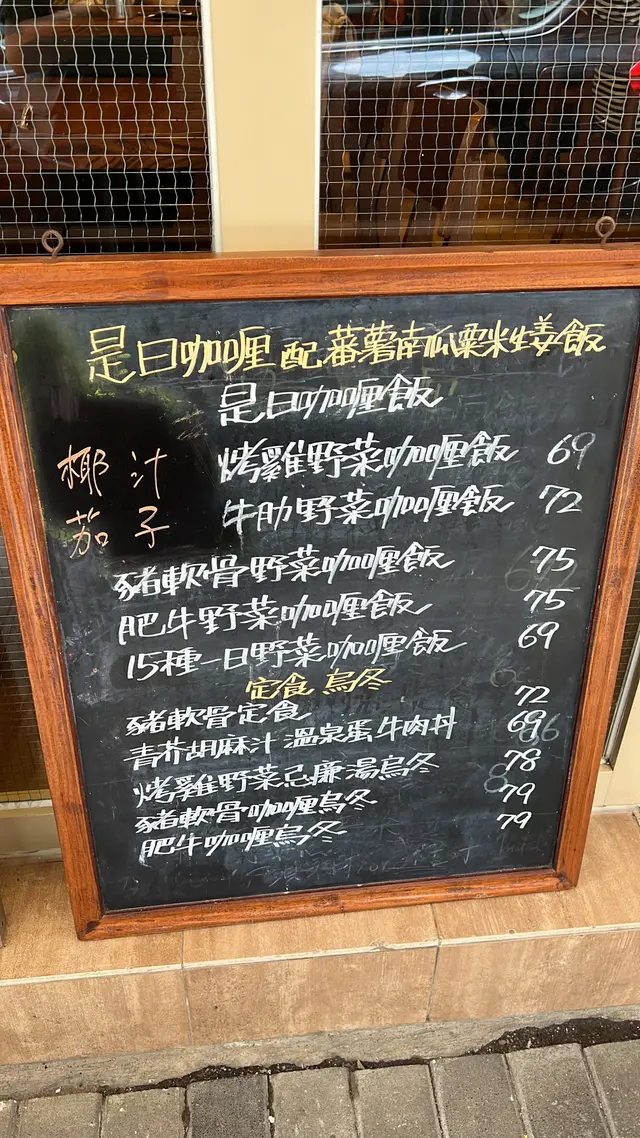 是日咖喱 配 蕃薯南瓜粟米生姜飯
是日咖喱飯
椰汁
茄子
烤雞野菜咖喱飯 69
牛肋野菜咖喱飯 72
豬軟骨野菜咖喱飯 75
肥牛野菜咖喱飯 75
15種一日野菜咖喱飯 69
定食 烏冬
豬軟骨定食 72
青芥胡麻汁 溫泉蛋牛肉丼 69
烤雞野菜忌廉湯烏冬 78
豬軟骨咖喱烏冬 79
肥牛咖喱烏冬 79